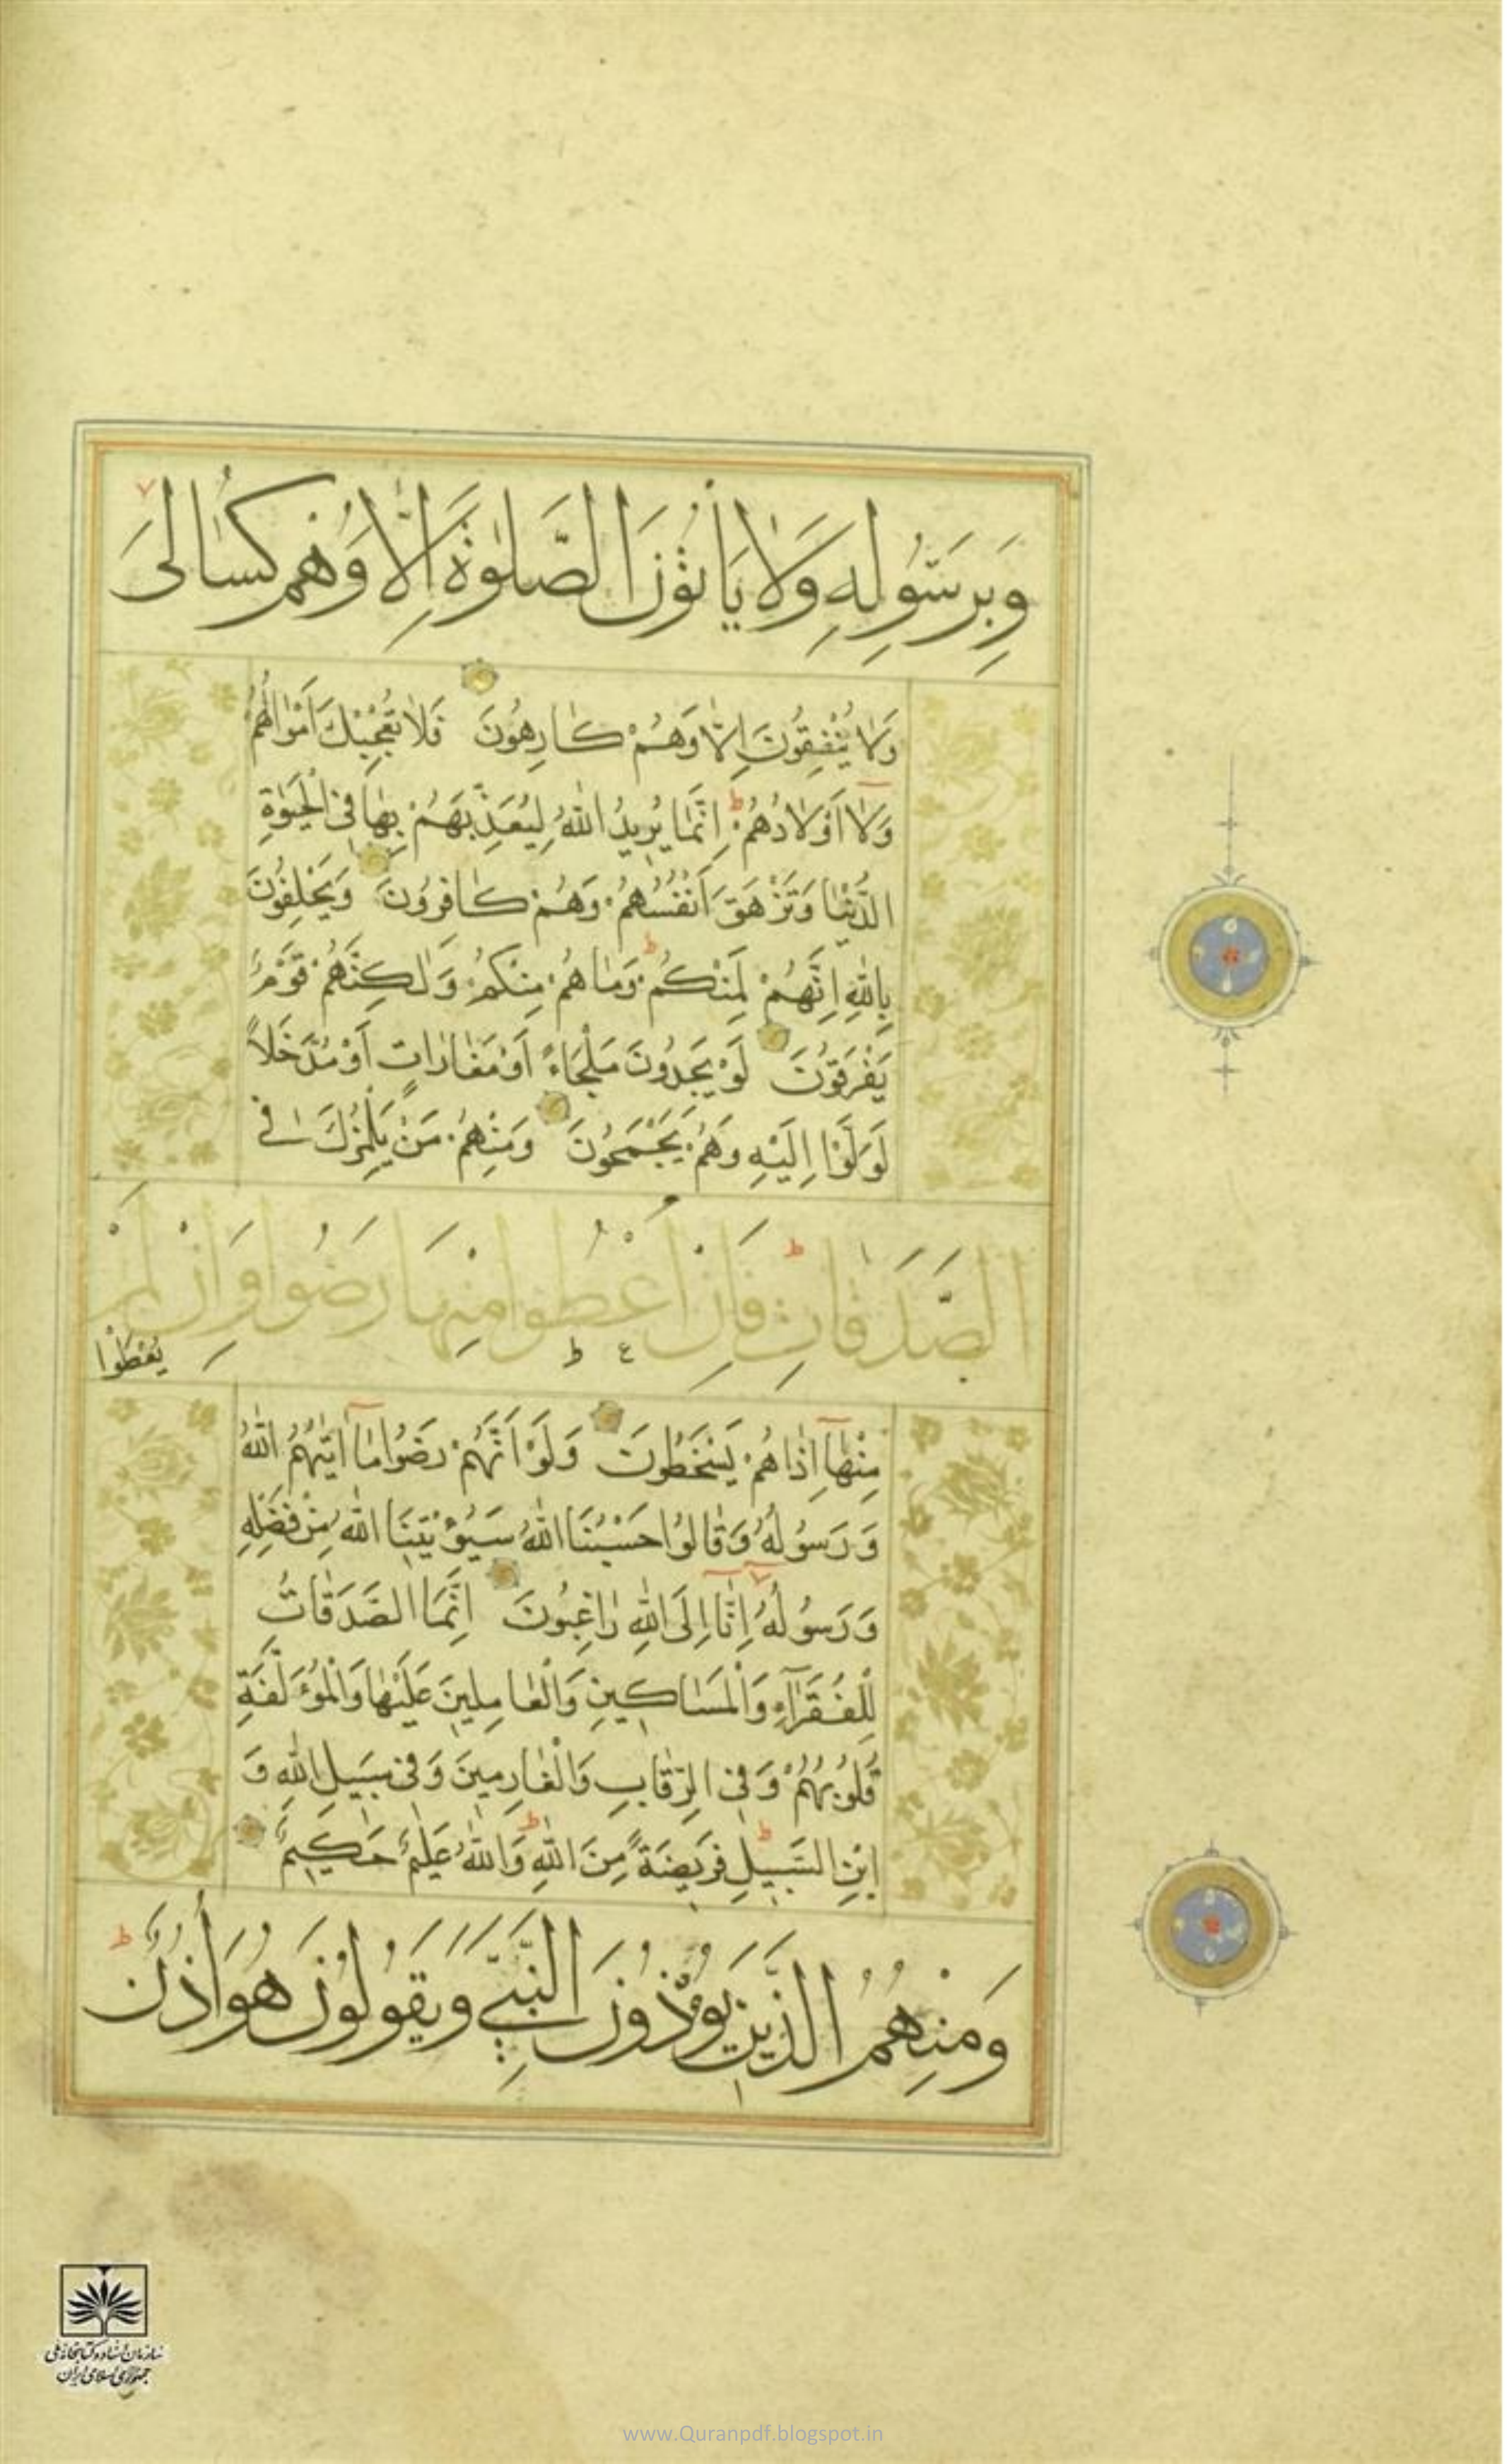 وَبِرَسُولِهِ وَلَا يَأْتُونَ الصَّلٰوةَ اِلَّا وَهُمْ كُسَالٰى
وَلَا يُنْفِقُونَ اِلَّا وَهُمْ كَارِهُونَ فَلَا تُعْجِبْكَ اَمْوَالُهُمْ
وَلَا اَوْلَادُهُمْ اِنَّمَا يُرِيدُ اللّٰهُ لِيُعَذِّبَهُمْ بِهَا فِى الْحَيٰوةِ
الدُّنْيَا وَتَزْهَقَ اَنْفُسُهُمْ وَهُمْ كَافِرُونَ وَيَحْلِفُونَ
بِاللّٰهِ اِنَّهُمْ لَمِنْكُمْ وَمَا هُمْ مِنْكُمْ وَلٰكِنَّهُمْ قَوْمٌ
يَفْرَقُونَ لَوْ يَجِدُونَ مَلْجَاءً اَوْ مَغَارَاتٍ اَوْ مُدَّخَلًا
لَوَلَّوْا اِلَيْهِ وَهُمْ يَجْمَحُونَ وَمِنْهُمْ مَنْ يَلْمِزُكَ فِى
الصَّدَقَاتِ فَاِنْ اُعْطُوا مِنْهَا رَضُوا وَاِنْ لَمْ
يُعْطَوْا
مِنْهَا اِذَا هُمْ يَسْخَطُونَ وَلَوْ اَنَّهُمْ رَضُوا مَا اٰتٰيهُمُ اللّٰهُ
وَرَسُولُهُ وَقَالُوا حَسْبُنَا اللّٰهُ سَيُؤْتِينَا اللّٰهُ مِنْ فَضْلِهِ
وَرَسُولُهُ اِنَّا اِلَى اللّٰهِ رَاغِبُونَ اِنَّمَا الصَّدَقَاتُ
لِلْفُقَرَآءِ وَالْمَسَاكِينِ وَالْعَامِلِينَ عَلَيْهَا وَالْمُؤَلَّفَةِ
قُلُوبُهُمْ وَفِى الرِّقَابِ وَالْغَارِمِينَ وَفِى سَبِيلِ اللّٰهِ وَ
ابْنِ السَّبِيلِ فَرِيضَةً مِنَ اللّٰهِ وَاللّٰهُ عَلِيمٌ حَكِيمٌ
وَمِنْهُمُ الَّذِينَ يُؤْذُونَ النَّبِىَّ وَيَقُولُونَ هُوَ اُذُنٌ
سازمان اسناد و کتابخانه ملی
جمهوری اسلامی ایران
www.Quranpdf.blogspot.in